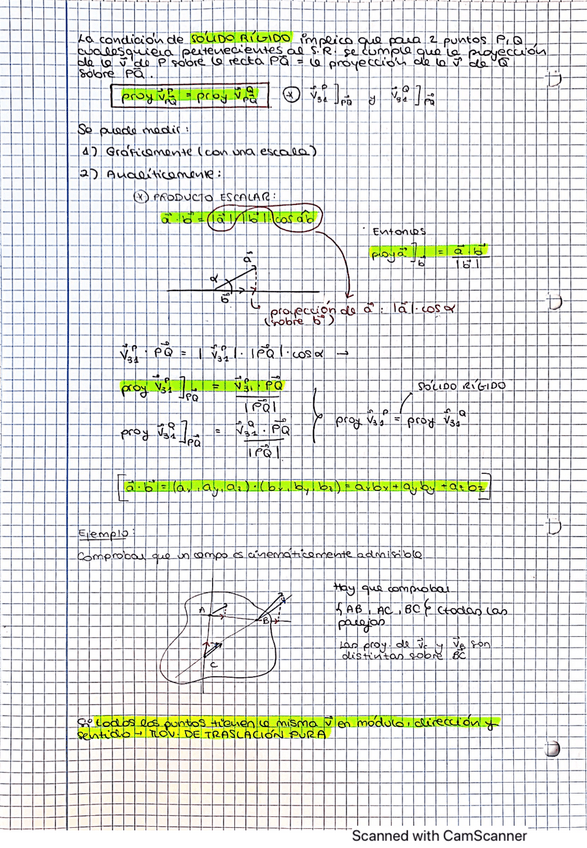 La condición de SÓLIDO RÍGIDO implica que para 2 puntos P, Q
cualesquiera pertenecientes al S.R. se cumple que la proyección
de la v⃗ de P sobre la recta PQ = la proyección de la v⃗ de Q
sobre PQ.
proy v⃗^P_PQ = proy v⃗^Q_PQ (*) v⃗₃₁^P]_PQ y v⃗₃₁^Q]_PQ
Se puede medir:
1) Gráficamente (con una escala)
2) Analíticamente:
(*) PRODUCTO ESCALAR:
a⃗ · b⃗ = |a⃗| · |b⃗| · cos ab
Entonces
proy a⃗]_b⃗ = a⃗ · b⃗ / |b⃗|
a⃗
α
b⃗
proyección de a⃗ : |a⃗| · cos α
(sobre b⃗)
v⃗₃₁^P · PQ⃗ = |v⃗₃₁^P| · |PQ⃗| · cos α →
SÓLIDO RÍGIDO
proy v⃗₃₁^P]_PQ⃗ = v⃗₃₁^P · PQ⃗ / |PQ⃗|
proy v⃗₃₁^P = proy v⃗₃₁^Q
proy v⃗₃₁^Q]_PQ⃗ = v⃗₃₁^Q · PQ⃗ / |PQ⃗|
[a⃗ · b⃗ = (ax, ay, az) · (bx, by, bz) = axbx + ayby + azbz]
Ejemplo:
Comprobar que un campo es cinemáticamente admisible
Hay que comprobar
{AB, AC, BC} (todas las
parejas
Las proy. de v⃗c y v⃗B son
distintas sobre BC
A
B
C
Si todos los puntos tienen la misma v⃗ en módulo, dirección y
sentido → MOV. DE TRASLACIÓN PURA
Scanned with CamScanner